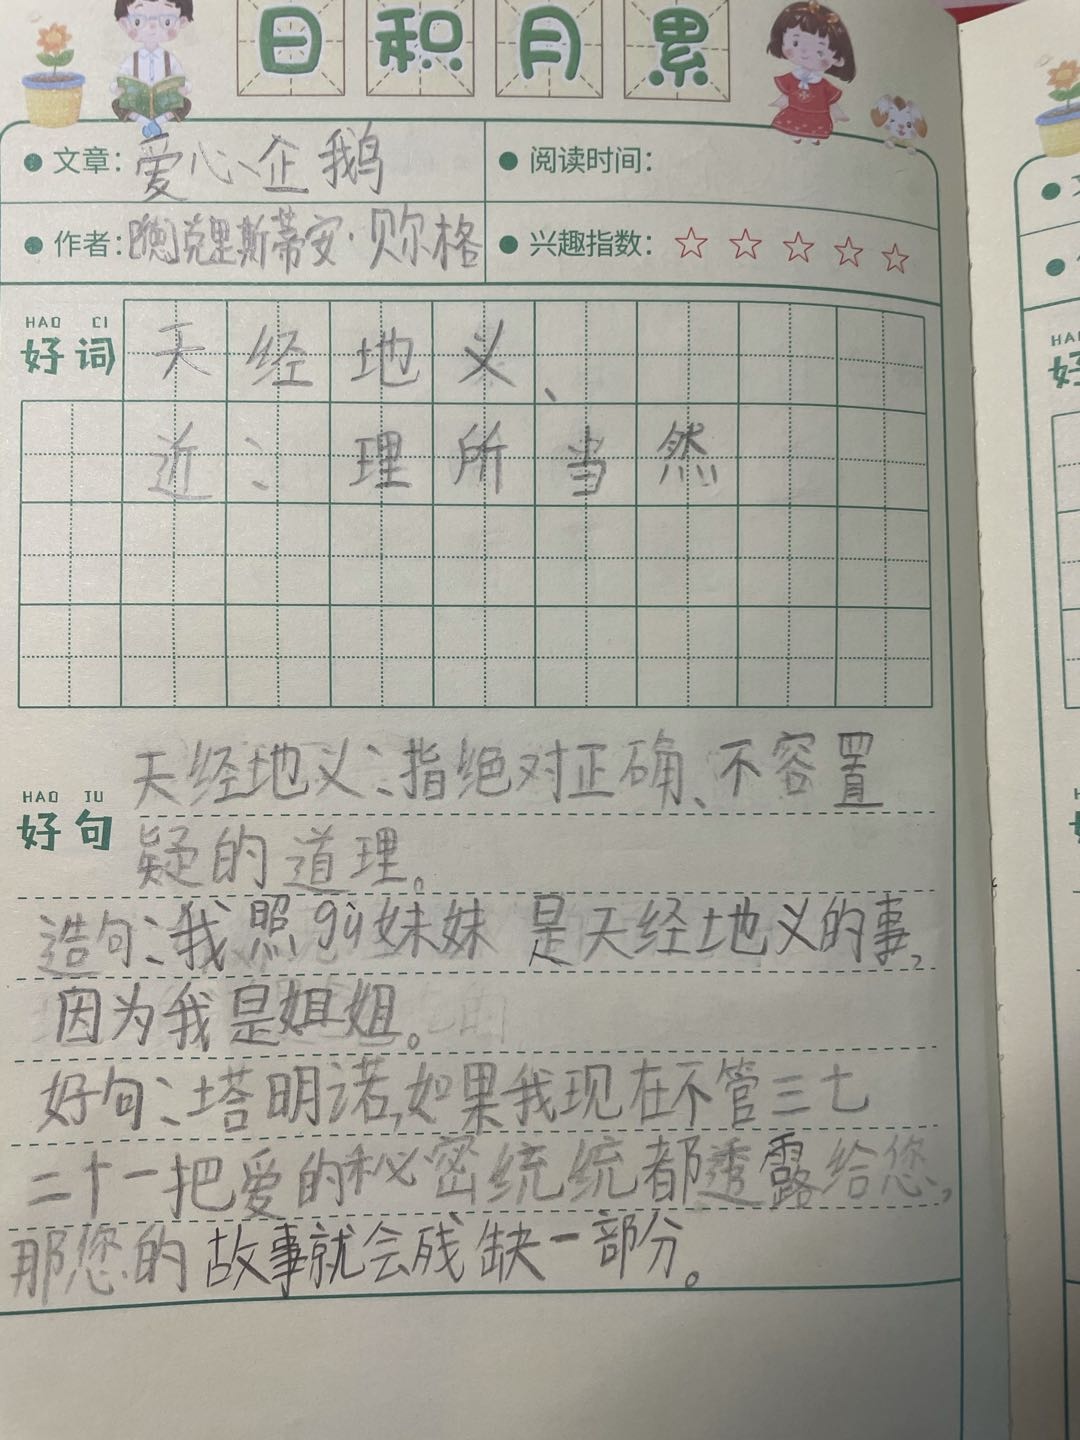 日积月累
文章：爱心企鹅
阅读时间：
作者：[德]克里斯蒂安·贝尔格
兴趣指数：☆ ☆ ☆ ☆ ☆
HAO CI
好词 天经地义、
近：理所当然
天经地义：指绝对正确、不容置
HAO JU
好句
疑的道理。
造句：我照gù妹妹 是天经地义的事，
因为我是姐姐。
好句：塔明诺，如果我现在不管三七
二十一把爱的秘密统统都透露给您，
那您的故事就会残缺一部分。